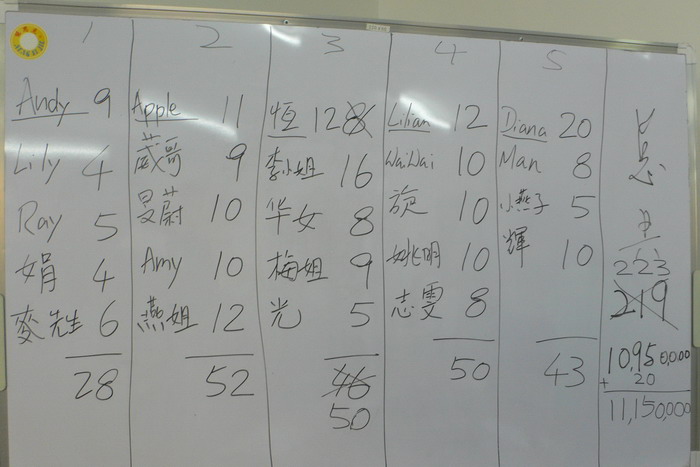 1
Andy 9
Lily 4
Ray 5
娟 4
麥先生 6
28
2
Apple 11
葳哥 9
旻蔚 10
Amy 10
燕姐 12
52
3
恒 12 8
李小姐 16
华女 8
梅姐 9
光 5
46
50
4
Lilian 12
WaiWai 10
旋 10
姚明 10
志雯 8
50
5
Diana 20
Man 8
小燕子 5
輝 10
43
223
219
10,950,000
+ 20
11,150,000